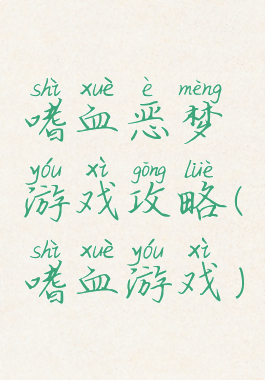 shì xuè è mèng
嗜血恶梦
yóu xì gōng lüè
游戏攻略(
shì xuè yóu xì
嗜血游戏)